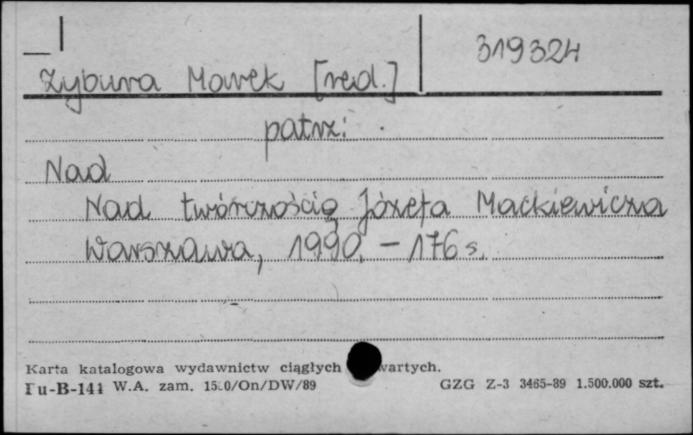 319324
Zybura Marek [red.]
patrz:
Nad
Nad twórczością Józefa Mackiewicza
Warszawa, 1990. – 176 s.
Karta katalogowa wydawnictw ciągłych wartych.
Pu-B-141 W.A. zam. 1500/On/DW/89 GZG Z-3 3465-89 1.500.000 szt.